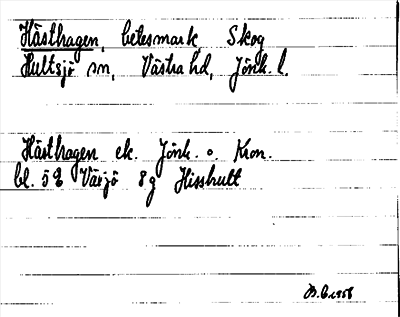 Hästhagen, betesmark, Skog
Hultsjö sn, Västra hd, Jönk. l.
Hästhagen ek. Jönk. o. Kron.
bl. 5 E Växjö 8 g Hisshult
B.C. 1958